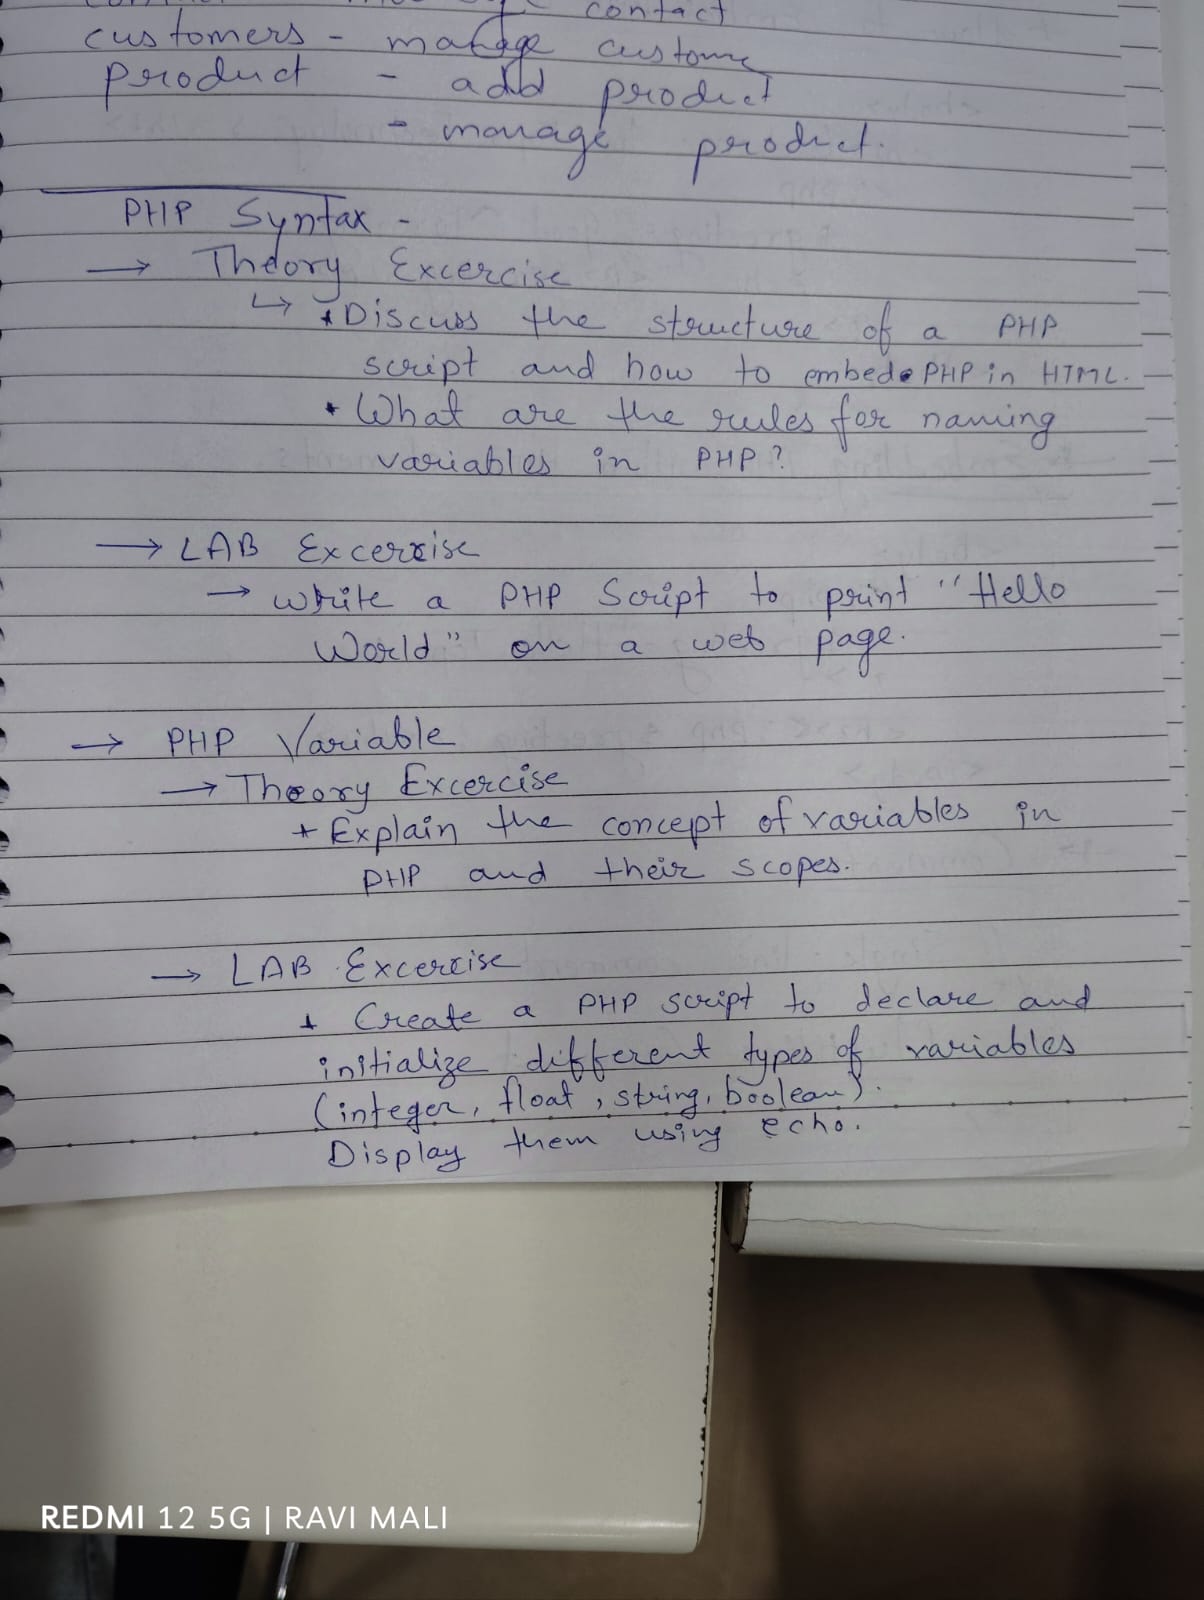 contact
customers - manage custome
product - add product
- manage product.
PHP Syntax -
→ Theory Excercise
↳ * Discuss the structure of a PHP
script and how to embed PHP in HTML.
* What are the rules for naming
variables in PHP?
→ LAB Excercise
→ write a PHP Script to print "Hello
World" on a web page.
→ PHP Variable
→ Theory Excercise
* Explain the concept of variables in
PHP and their scopes.
→ LAB Excercise
* Create a PHP script to declare and
initialize different types of variables
(integer, float, string, boolean).
Display them using echo.
REDMI 12 5G | RAVI MALI